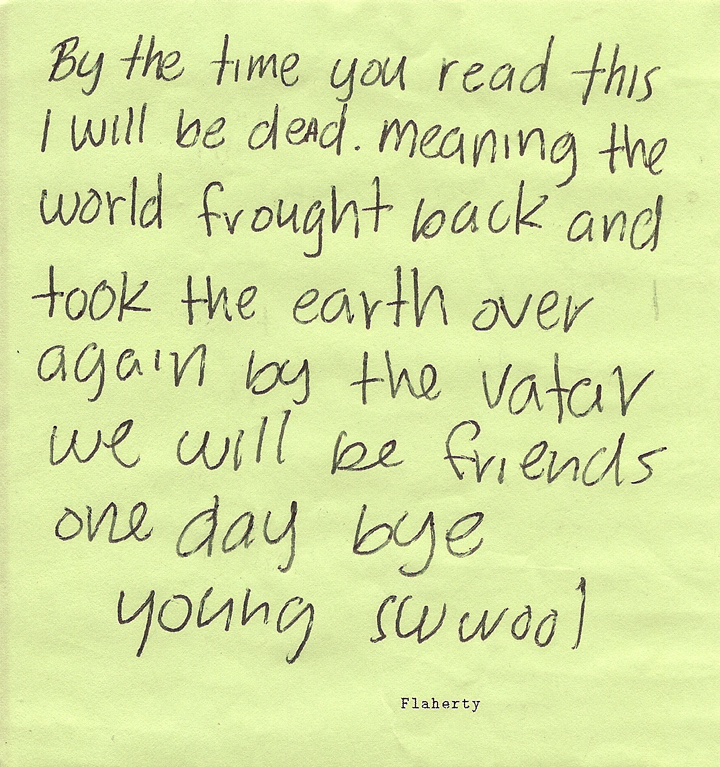 By the time you read this
I will be deAd. meaning the
world frought back and
took the earth over
again by the vatar
we will be friends
one day bye
young swwool
Flaherty